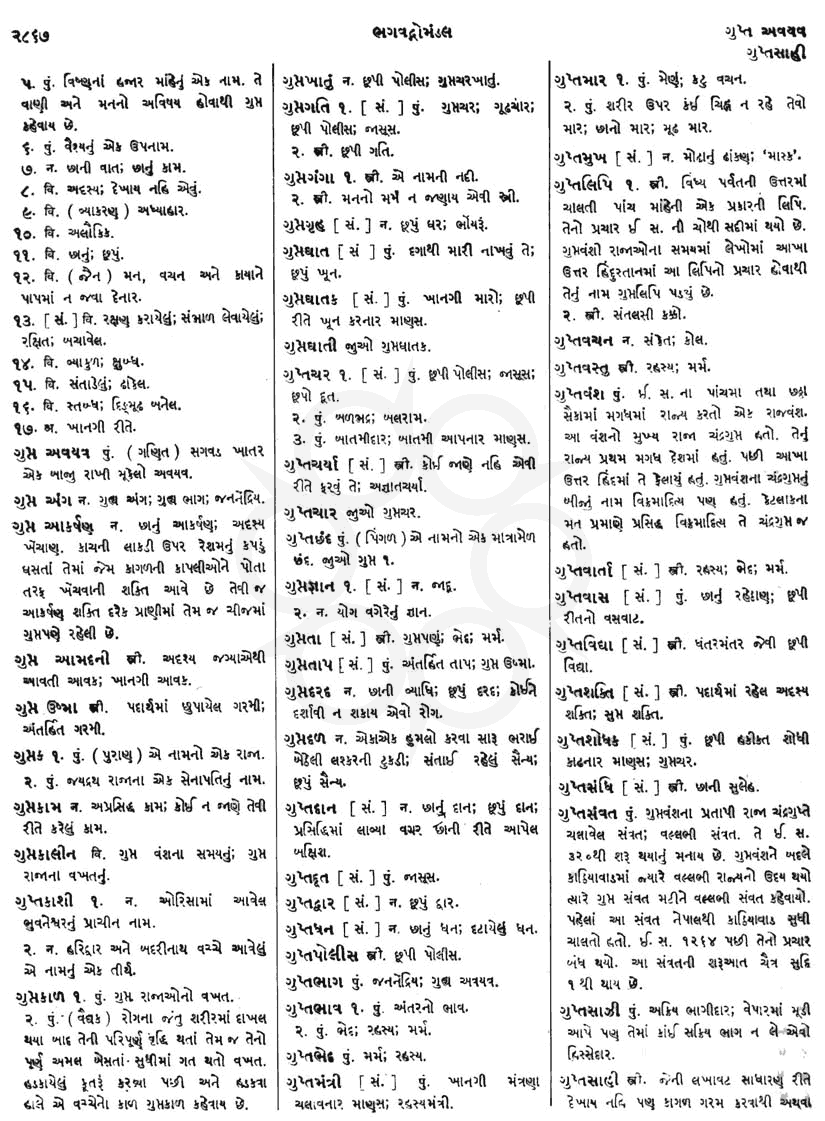 ૨૮૬૭
ભગવદ્ગોમંડલ
ગુપ્ત અવયવ
ગુપ્તસાહી
૫. પું. વિષ્ણુનાં હજાર માંહેનું એક નામ. તે
વાણી અને મનનો અવિષય હોવાથી ગુપ્ત
કહેવાય છે.
૬. પું. વૈશ્યનું એક ઉપનામ.
૭. ન. છાની વાત; છાનું કામ.
૮. વિ. અદશ્ય; દેખાય નહિ એવું.
૯. વિ. ( વ્યાકરણ ) અધ્યાહાર.
૧૦. વિ. અલૌકિક.
૧૧. વિ. છાનું; છૂપું.
૧૨. વિ. ( જૈન ) મન, વચન અને કાયાને
પાપમાં ન જવા દેનાર.
૧૩. [ સં. ] વિ. રક્ષણ કરાયેલું; સંભાળ લેવાયેલું;
રક્ષિત; બચાવેલ.
૧૪. વિ. વ્યાકુળ; ક્ષુબ્ધ.
૧૫. વિ. સંતાડેલું; ઢાંકેલ.
૧૬. વિ. સ્તબ્ધ; દિઙ્મૂઢ બનેલ.
૧૭. અ. ખાનગી રીતે.
ગુપ્ત અવયવ પું. ( ગણિત ) સગવડ ખાતર
એક બાજુ રાખી મૂકેલો અવયવ.
ગુપ્ત અંગ ન. ગુહ્ય અંગ; ગુહ્ય ભાગ; જનનેંદ્રિય.
ગુપ્ત આકર્ષણ ન. છાનું આકર્ષણ; અદશ્ય
ખેંચાણ. કાચની લાકડી ઉપર રેશમનું કપડું
ઘસતાં તેમાં જેમ કાગળની કાપલીઓને પોતા
તરફ ખેંચવાની શક્તિ આવે છે તેવી જ
આકર્ષણ શક્તિ દરેક પ્રાણીમાં તેમ જ ચીજમાં
ગુપ્તપણે રહેલી છે.
ગુપ્ત આમદની સ્ત્રી. અદશ્ય જગ્યાએથી
આવતી આવક; ખાનગી આવક.
ગુપ્ત ઉષ્મા સ્ત્રી. પદાર્થમાં છુપાયેલ ગરમી;
અંતર્હિત ગરમી.
ગુપ્તક ૧. પું. ( પુરાણ ) એ નામનો એક રાજા.
૨. પું. જયદ્રથ રાજાના એક સેનાપતિનું નામ.
ગુપ્તકામ ન. અપ્રસિદ્ધ કામ; કોઈ ન જાણે તેવી
રીતે કરેલું કામ.
ગુપ્તકાલીન વિ. ગુપ્ત વંશના સમયનું; ગુપ્ત
રાજાના વખતનું.
ગુપ્તકાશી ૧. ન. ઓરિસામાં આવેલ
ભુવનેશ્વરનું પ્રાચીન નામ.
૨. ન. હરિદ્વાર અને બદરીનાથ વચ્ચે આવેલું
એ નામનું એક તીર્થ.
ગુપ્તકાળ ૧. પું. ગુપ્ત રાજાઓનો વખત.
૨. પું. ( વૈદ્યક ) રોગના જંતુ શરીરમાં દાખલ
થયા બાદ તેની પરિપૂર્ણ વૃદ્ધિ થતાં તેમ જ તેનો
પૂર્ણ અમલ બેસતાં સુધીમાં ગત થતો વખત.
હડકાયેલું કૂતરૂં કરડ્યા પછી અને હડકવા
હાલે એ વચ્ચેનો કાળ ગુપ્તકાળ કહેવાય છે.
ગુપ્તખાતું ન. છૂપી પોલીસ; ગુપ્તચરખાતું.
ગુપ્તગતિ ૧. [ સં. ] પું. ગુપ્તચર; ગૂઢચાર;
છૂપી પોલીસ; જાસૂસ.
૨. સ્ત્રી. છૂપી ગતિ.
ગુપ્તગંગા ૧. સ્ત્રી. એ નામની નદી.
૨. સ્ત્રી. મનનો મર્મ ન જણાય એવી સ્ત્રી.
ગુપ્તગૃહ [ સં. ] ન. છૂપું ઘર; ભોંયરૂં.
ગુપ્તઘાત [ સં ] પું. દગાથી મારી નાખવું તે;
છૂપું ખૂન.
ગુપ્તઘાતક [ સં. ] પું. ખાનગી મારો; છૂપી
રીતે ખૂન કરનાર માણુસ.
ગુપ્તઘાતી જુઓ ગુપ્તઘાતક.
ગુપ્તચર ૧. [ સં. ] પું. છૂપી પોલીસ; જાસૂસ;
છૂપો દૂત.
૨. પું. બળભદ્ર; બલરામ.
૩. પું. બાતમીદાર; બાતમી આપનાર માણુસ.
ગુપ્તચર્યા [ સં. ] સ્ત્રી. કોઈ જાણે નહિ એવી
રીતે ફરવું તે; અજ્ઞાતચર્યા.
ગુપ્તચાર જુઓ ગુપ્તચર.
ગુપ્તછંદ પું. ( પિંગળ ) એ નામનો એક માત્રામેળ
છંદ. જુઓ ગુપ્ત ૧.
ગુપ્તજ્ઞાન ૧. [ સં. ] ન. જાદૂ.
૨. ન. યોગ વગેરેનું જ્ઞાન.
ગુપ્તતા [ સં. ] સ્ત્રી. ગુપ્તપણું; ભેદ; મર્મ.
ગુપ્તતાપ [ સં. ] પું. અંતર્હિત તાપ; ગુપ્ત ઉષ્મા.
ગુપ્તદરદ ન. છાની વ્યાધિ; છૂપું દરદ; કોઈને
દર્શાવી ન શકાય એવો રોગ.
ગુપ્તદળ ન. એકાએક હુમલો કરવા સારૂ ભરાઈ
બેઠેલી લશ્કરની ટુકડી; સંતાઈ રહેલું સૈન્ય;
છૂપું સૈન્ય.
ગુપ્તદાન [ સં. ] ન. છાનું દાન; છૂપું દાન;
પ્રસિદ્ધિમાં લાવ્યા વગર છાની રીતે આપેલ
બક્ષિશ.
ગુપ્તદૂત [ સં. ] પું. જાસૂસ.
ગુપ્તદ્વાર [ સં. ] ન. છૂપું દ્વાર.
ગુપ્તધન [ સં. ] ન. છાનું ધન; દટાયેલું ધન.
ગુપ્તપોલીસ સ્ત્રી. છૂપી પોલીસ.
ગુપ્તભાગ પું. જનનેંદ્રિય; ગુહ્ય અવયવ.
ગુપ્તભાવ ૧. પું. અંતરનો ભાવ.
૨. પું. ભેદ; રહસ્ય; મર્મ.
ગુપ્તભેદ પું. મર્મ; રહસ્ય.
ગુપ્તમંત્રી [ સં. ] પું. ખાનગી મંત્રણા
ચલાવનાર માણુસ; રહસ્યમંત્રી.
ગુપ્તમાર ૧. પું. મેણું; કટુ વચન.
૨. પું. શરીર ઉપર કંઈ ચિહ્ન ન રહે તેવો
માર; છાનો માર; મૂઢ માર.
ગુપ્તમુખ [ સં. ] ન. મોઢાનું ઢાંકણ; 'માસ્ક'.
ગુપ્તલિપિ ૧. સ્ત્રી. વિંધ્ય પર્વતની ઉત્તરમાં
ચાલતી પાંચ માંહેની એક પ્રકારની લિપિ.
તેનો પ્રચાર ઈ સ. ની ચોથી સદીમાં થયો છે.
ગુપ્તવંશી રાજાઓના સમયમાં લેખોમાં આખા
ઉત્તર હિંદુસ્તાનમાં આ લિપિનો પ્રચાર હોવાથી
તેનું નામ ગુપ્તલિપિ પડ્યું છે.
૨. સ્ત્રી. સંતલસી કક્કો.
ગુપ્તવચન ન. સંકેત; કોલ.
ગુપ્તવસ્તુ સ્ત્રી. રહસ્ય; મર્મ.
ગુપ્તવંશ પું. ઈ. સ. ના પાંચમા તથા છઠ્ઠા
સૈકામાં મગધમાં રાજ્ય કરતો એક રાજવંશ.
આ વંશનો મુખ્ય રાજા ચંદ્રગુપ્ત હતો. તેનું
રાજ્ય પ્રથમ મગધ દેશમાં હતું. પછી આખા
ઉત્તર હિંદમાં તે ફેલાયું હતું. ગુપ્તવંશના ચંદ્રગુપ્તનું
બીજું નામ વિક્રમાદિત્ય પણ હતું. કેટલાકના
મત પ્રમાણે પ્રસિદ્ધ વિક્રમાદિત્ય તે ચંદ્રગુપ્ત જ
હતો.
ગુપ્તવાર્તા [ સં. ] સ્ત્રી. રહસ્ય; ભેદ; મર્મ.
ગુપ્તવાસ [ સં. ] પું. છાનું રહેઠાણ; છૂપી
રીતનો વસવાટ.
ગુપ્તવિદ્યા [ સં. ] સ્ત્રી. ધંતરમંતર જેવી છૂપી
વિદ્યા.
ગુપ્તશક્તિ [ સં. ] સ્ત્રી. પદાર્થમાં રહેલ અદશ્ય
શક્તિ; સુપ્ત શક્તિ.
ગુપ્તશોધક [ સં. ] પું. છૂપી હકીકત શોધી
કાઢનાર માણુસ; ગુપ્તચર.
ગુપ્તસંધિ [ સં. ] સ્ત્રી. છાની સુલેહ.
ગુપ્તસંવત પું. ગુપ્તવંશના પ્રતાપી રાજા ચંદ્રગુપ્તે
ચલાવેલ સંવત; વલ્લભી સંવત. તે ઈ. સ.
૩૨૦થી શરૂ થયાનું મનાય છે. ગુપ્તવંશને બદલે
કાઠિયાવાડમાં જ્યારે વલ્લભી રાજ્યનો ઉદય થયો
ત્યારે ગુપ્ત સંવત મટીને વલ્લભી સંવત કહેવાયો.
પહેલાં આ સંવત નેપાલથી કાઠિયાવાડ સુધી
ચાલતો હતો. ઈ. સ. ૧૨૬૪ પછી તેનો પ્રચાર
બંધ થયો. આ સંવતની શરૂઆત ચૈત્ર સુદિ
૧ થી થાય છે.
ગુપ્તસાઝી પું. અક્રિય ભાગીદાર; વેપારમાં મૂડી
આપે પણ તેમાં કાંઈ સક્રિય ભાગ ન લે એવો
હિસ્સેદાર.
ગુપ્તસાહી સ્ત્રી. જેની લખાવટ સાધારણ રીતે
દેખાય નહિ પણ કાગળ ગરમ કરવાથી અથવા